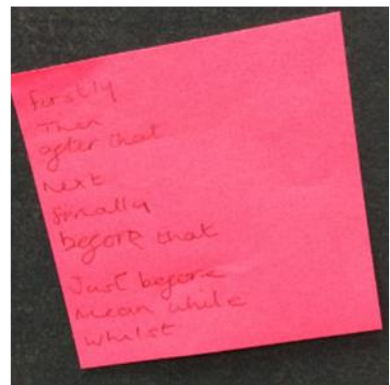 firstly
Then
after that
Next
finally
before that
Just before
Mean while
whilst